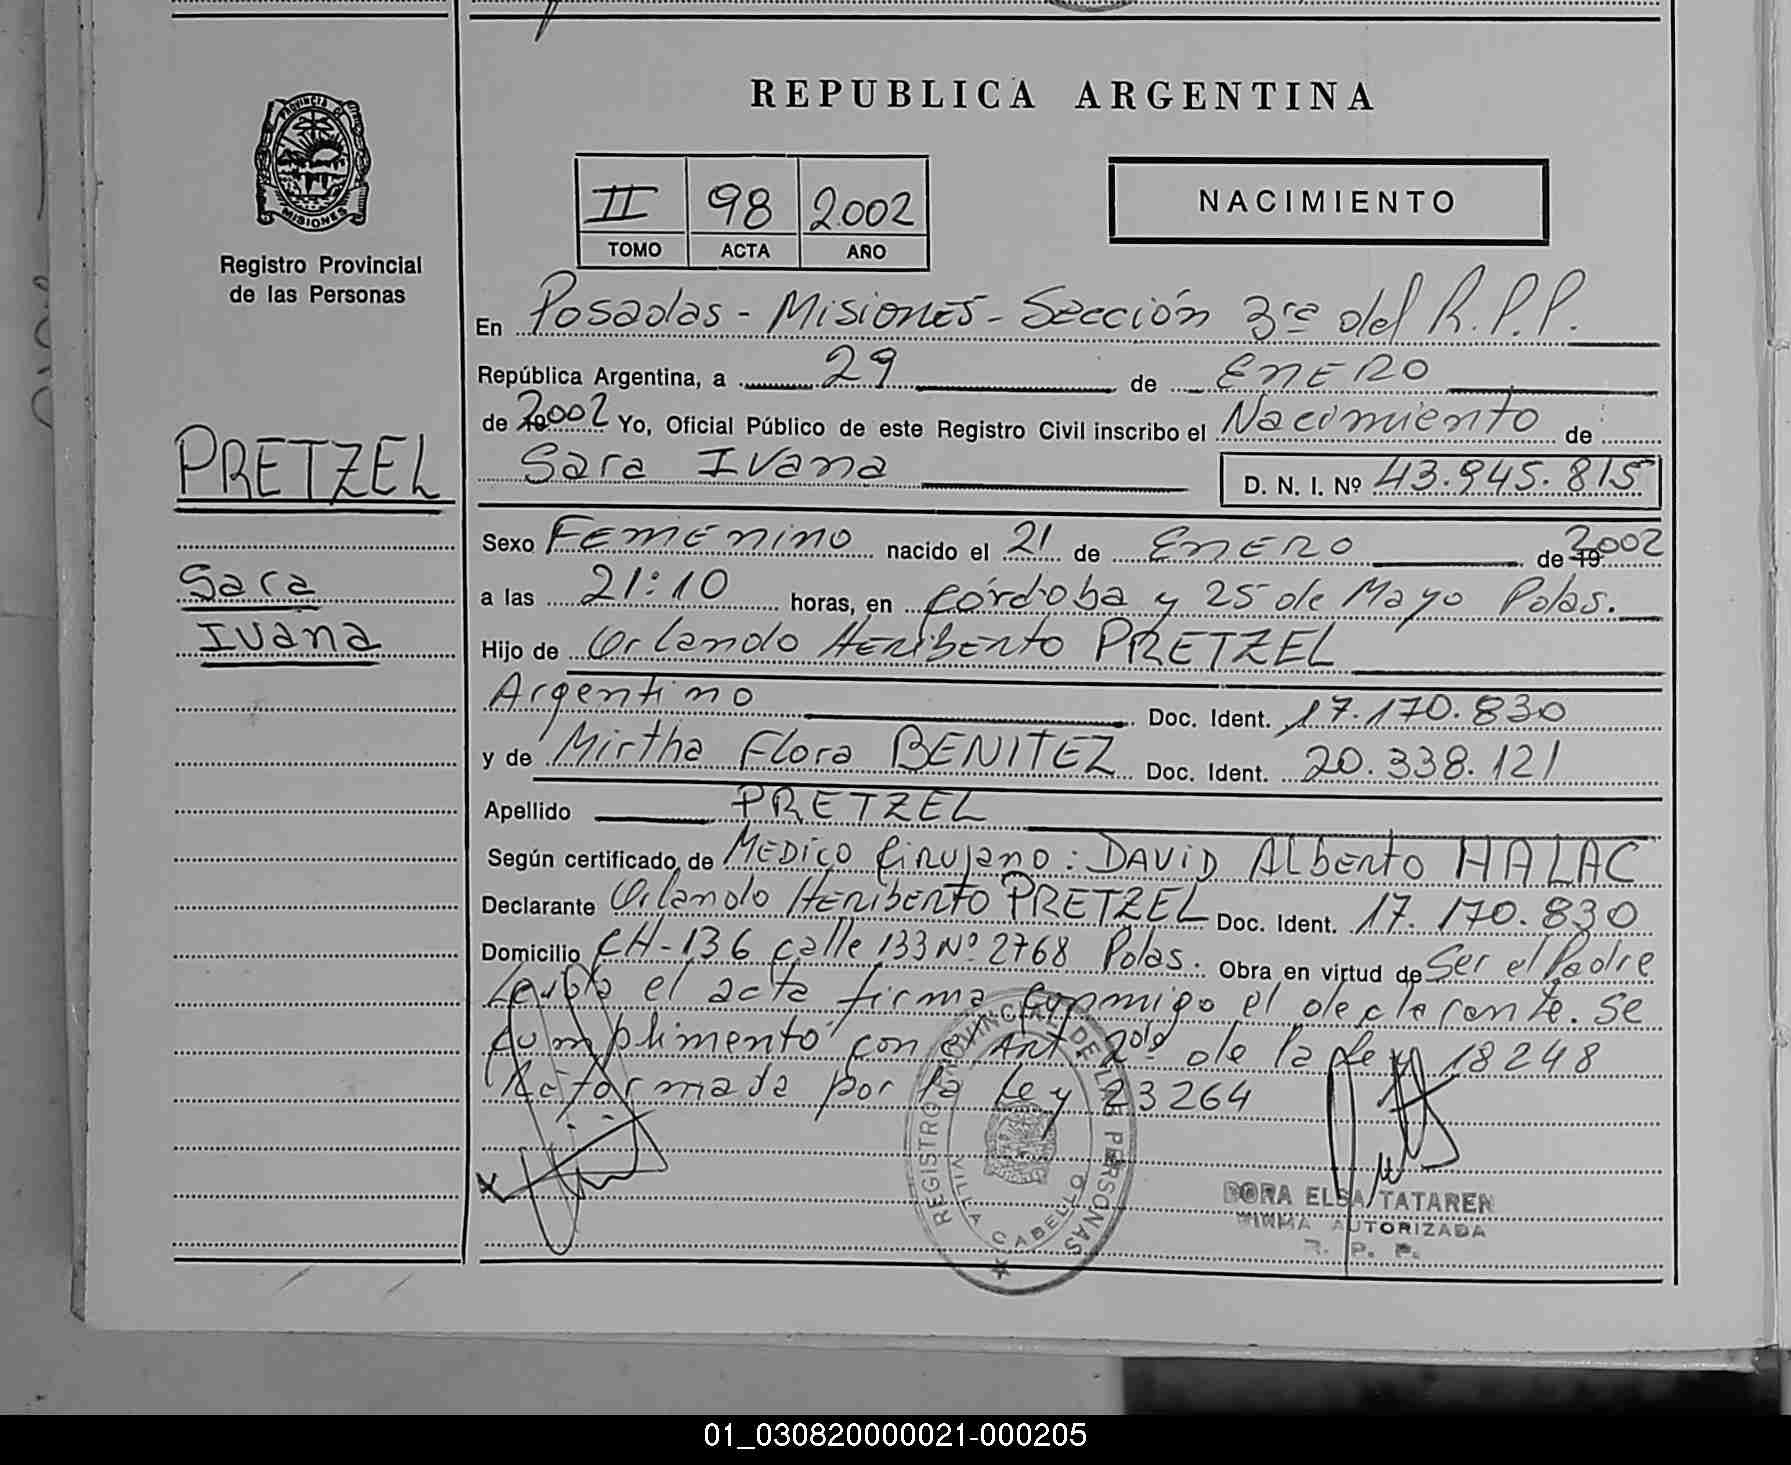 REPUBLICA ARGENTINA
PROVINCIA DE
MISIONES
Registro Provincial
de las Personas
II 98 2002
TOMO ACTA AÑO
NACIMIENTO
En Posadas - Misiones - Sección 3ra del R.P.P.
República Argentina, a 29 de ENERO
de 2002 Yo, Oficial Público de este Registro Civil inscribo el Nacimiento de
Sara Ivana D. N. I. Nº 43.945.815
PRETZEL
Sara
Ivana
Sexo FEMENINO nacido el 21 de ENERO de 2002
a las 21:10 horas, en Córdoba y 25 de Mayo Pdas.
Hijo de Orlando Heriberto PRETZEL
Argentino Doc. Ident. 17.170.830
y de Mirtha Flora BENITEZ Doc. Ident. 20.338.121
Apellido PRETZEL
Según certificado de Medico Cirujano: DAVID Alberto HALAC
Declarante Orlando Heriberto PRETZEL Doc. Ident. 17.170.830
Domicilio CH-136 calle 133 Nº 2768 Pdas. Obra en virtud de Ser el Padre
Leída el acta firma conmigo el declarante. Se
cumplimento con el Art 20 de la Ley 18248
Reformada por la Ley 23264
REGISTRO PROVINCIAL DE LAS PERSONAS
VILLA CABELLO
DORA ELSA TATAREN
FIRMA AUTORIZADA
R. P. P.
01_030820000021-000205